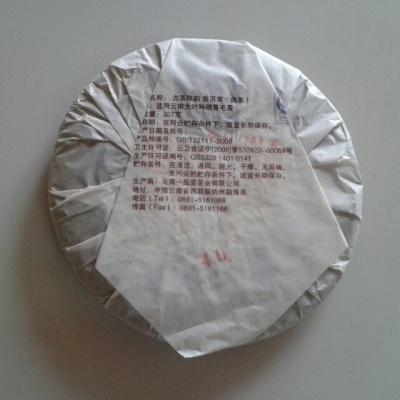 名称: 古茶 韵 普洱茶(熟茶)
选用云南大叶种晒青毛茶
量: 357克
存期: 在符合贮存条件下, 适宜长期保存。
产日期及批号:
*品标准号: GB/T22111-2008
卫生许可证: 云卫食证字[2008]第532822-60069号
生产许可证编号: QS5328 1401 0141
贮存条件: 在清洁、通风、避光、干燥、无异味、
无污染的贮存条件下, 适宜长期保存。
生产商: 云南一品堂茶业有限公司
地址: 中国云南省西双版纳州勐海县
电话(Tel): 0691-5161088
传真(Fax): 0691-5161168